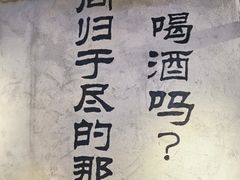 喝酒吗？
同归于尽的那